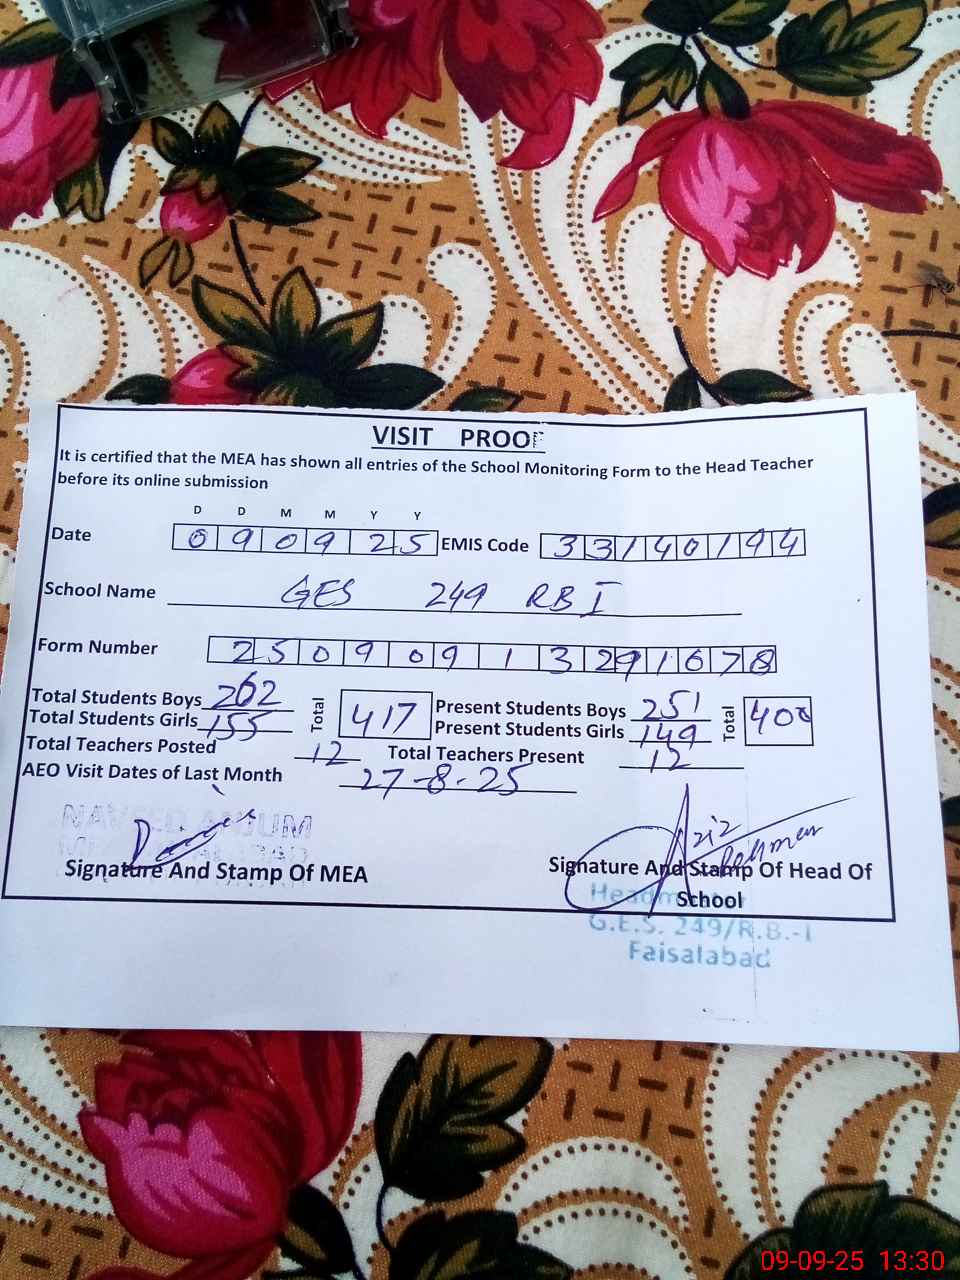 VISIT PROOF
It is certified that the MEA has shown all entries of the School Monitoring Form to the Head Teacher
before its online submission
D D M M Y Y
Date 0 9 0 9 2 5 EMIS Code 3 3 1 4 0 1 9 4
School Name GES 249 RB I
Form Number 2 5 0 9 0 9 1 3 2 9 1 6 7 8
Total Students Boys 262 Total 417 Present Students Boys 251 Total 400
Total Students Girls 155 Present Students Girls 149
Total Teachers Posted 12 Total Teachers Present 12
AEO Visit Dates of Last Month 27-8-25
NAVEED ANJUM
Aziz Rehman
Signature And Stamp Of MEA Signature And Stamp Of Head Of
School
Headmaster
G.E.S. 249/R.B.-I
Faisalabad
09-09-25 13:30